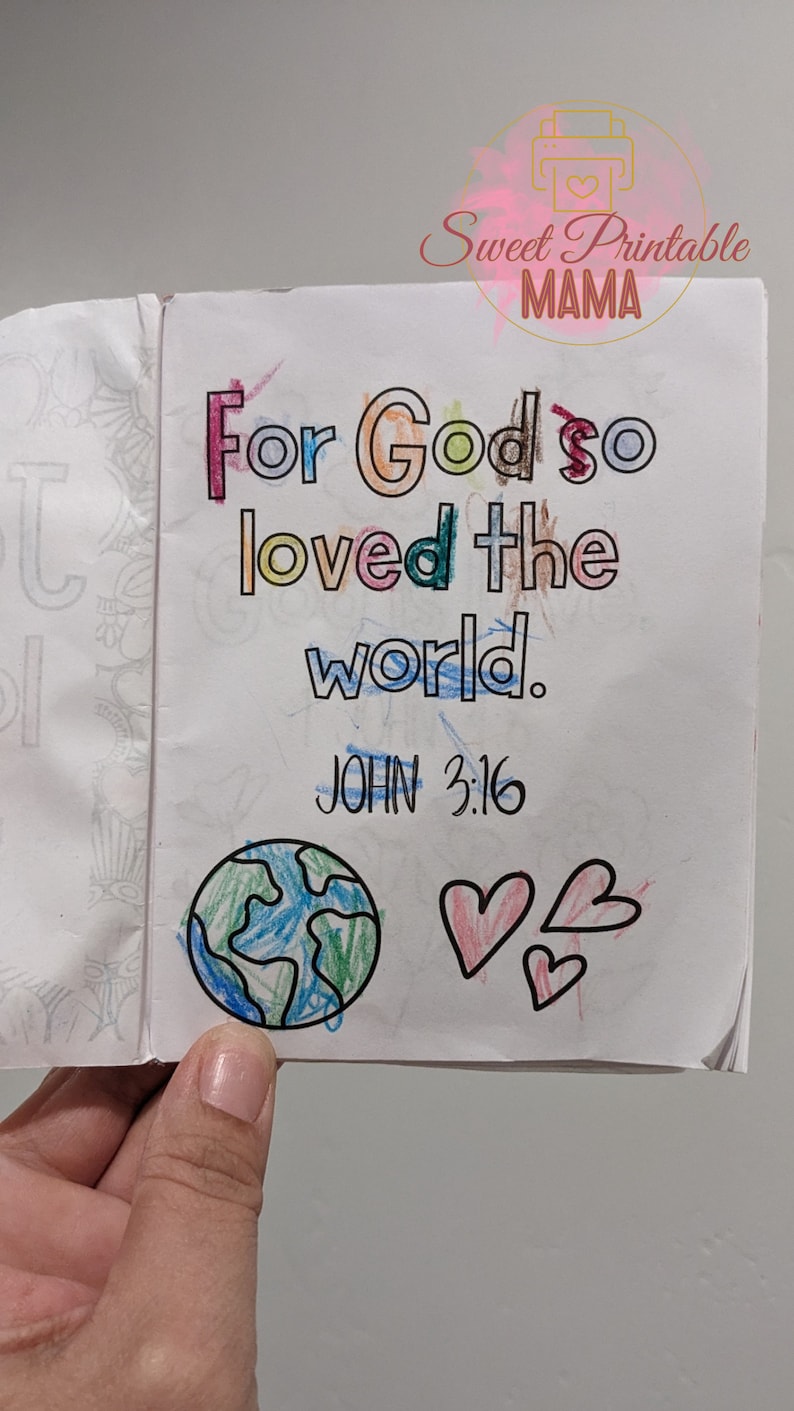 Sweet Printable
MAMA
For God so
loved the
world.
JOHN 3:16